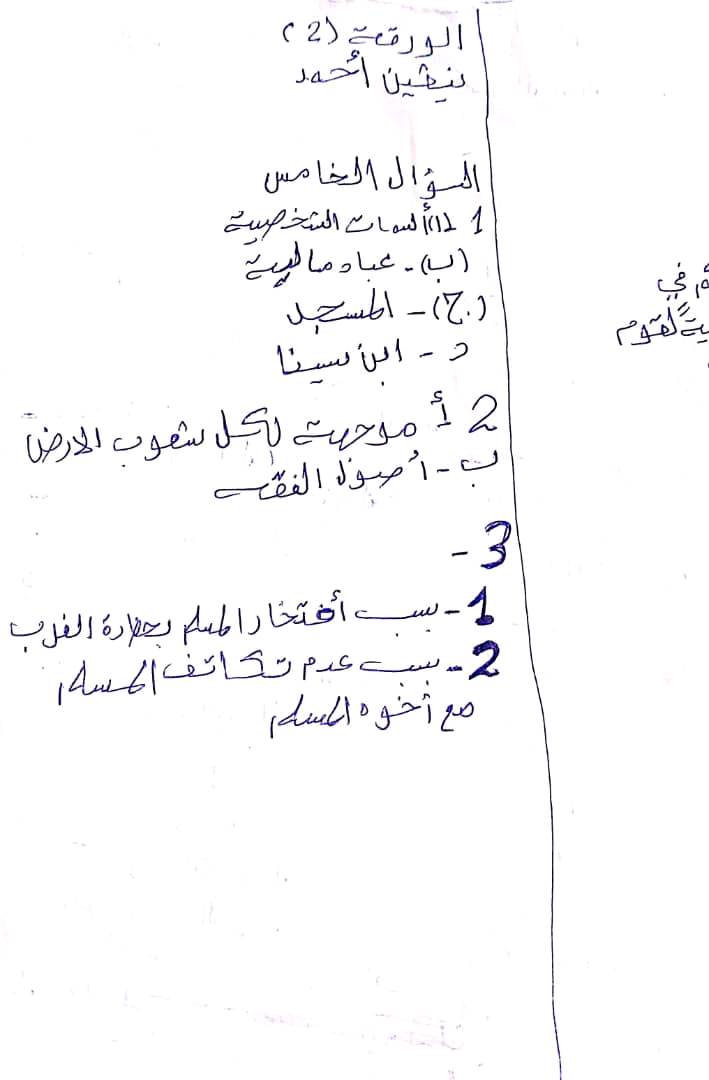 الورقة (2)
نيڤين أحمد
السؤال الخامس
1 (أ) السمات الشخصية
(ب) - عباد مالية
(ج) - المسجد
د - ابن سينا
2 أ موجهة لكل شعوب الارض
ب - أصول الفقه
3 -
1 - بسب أفتخار المسلم بحضارة الغرب
2 - بسب عدم تكاتف المسلم
مع أخوه المسلم
م في
ية لقوم